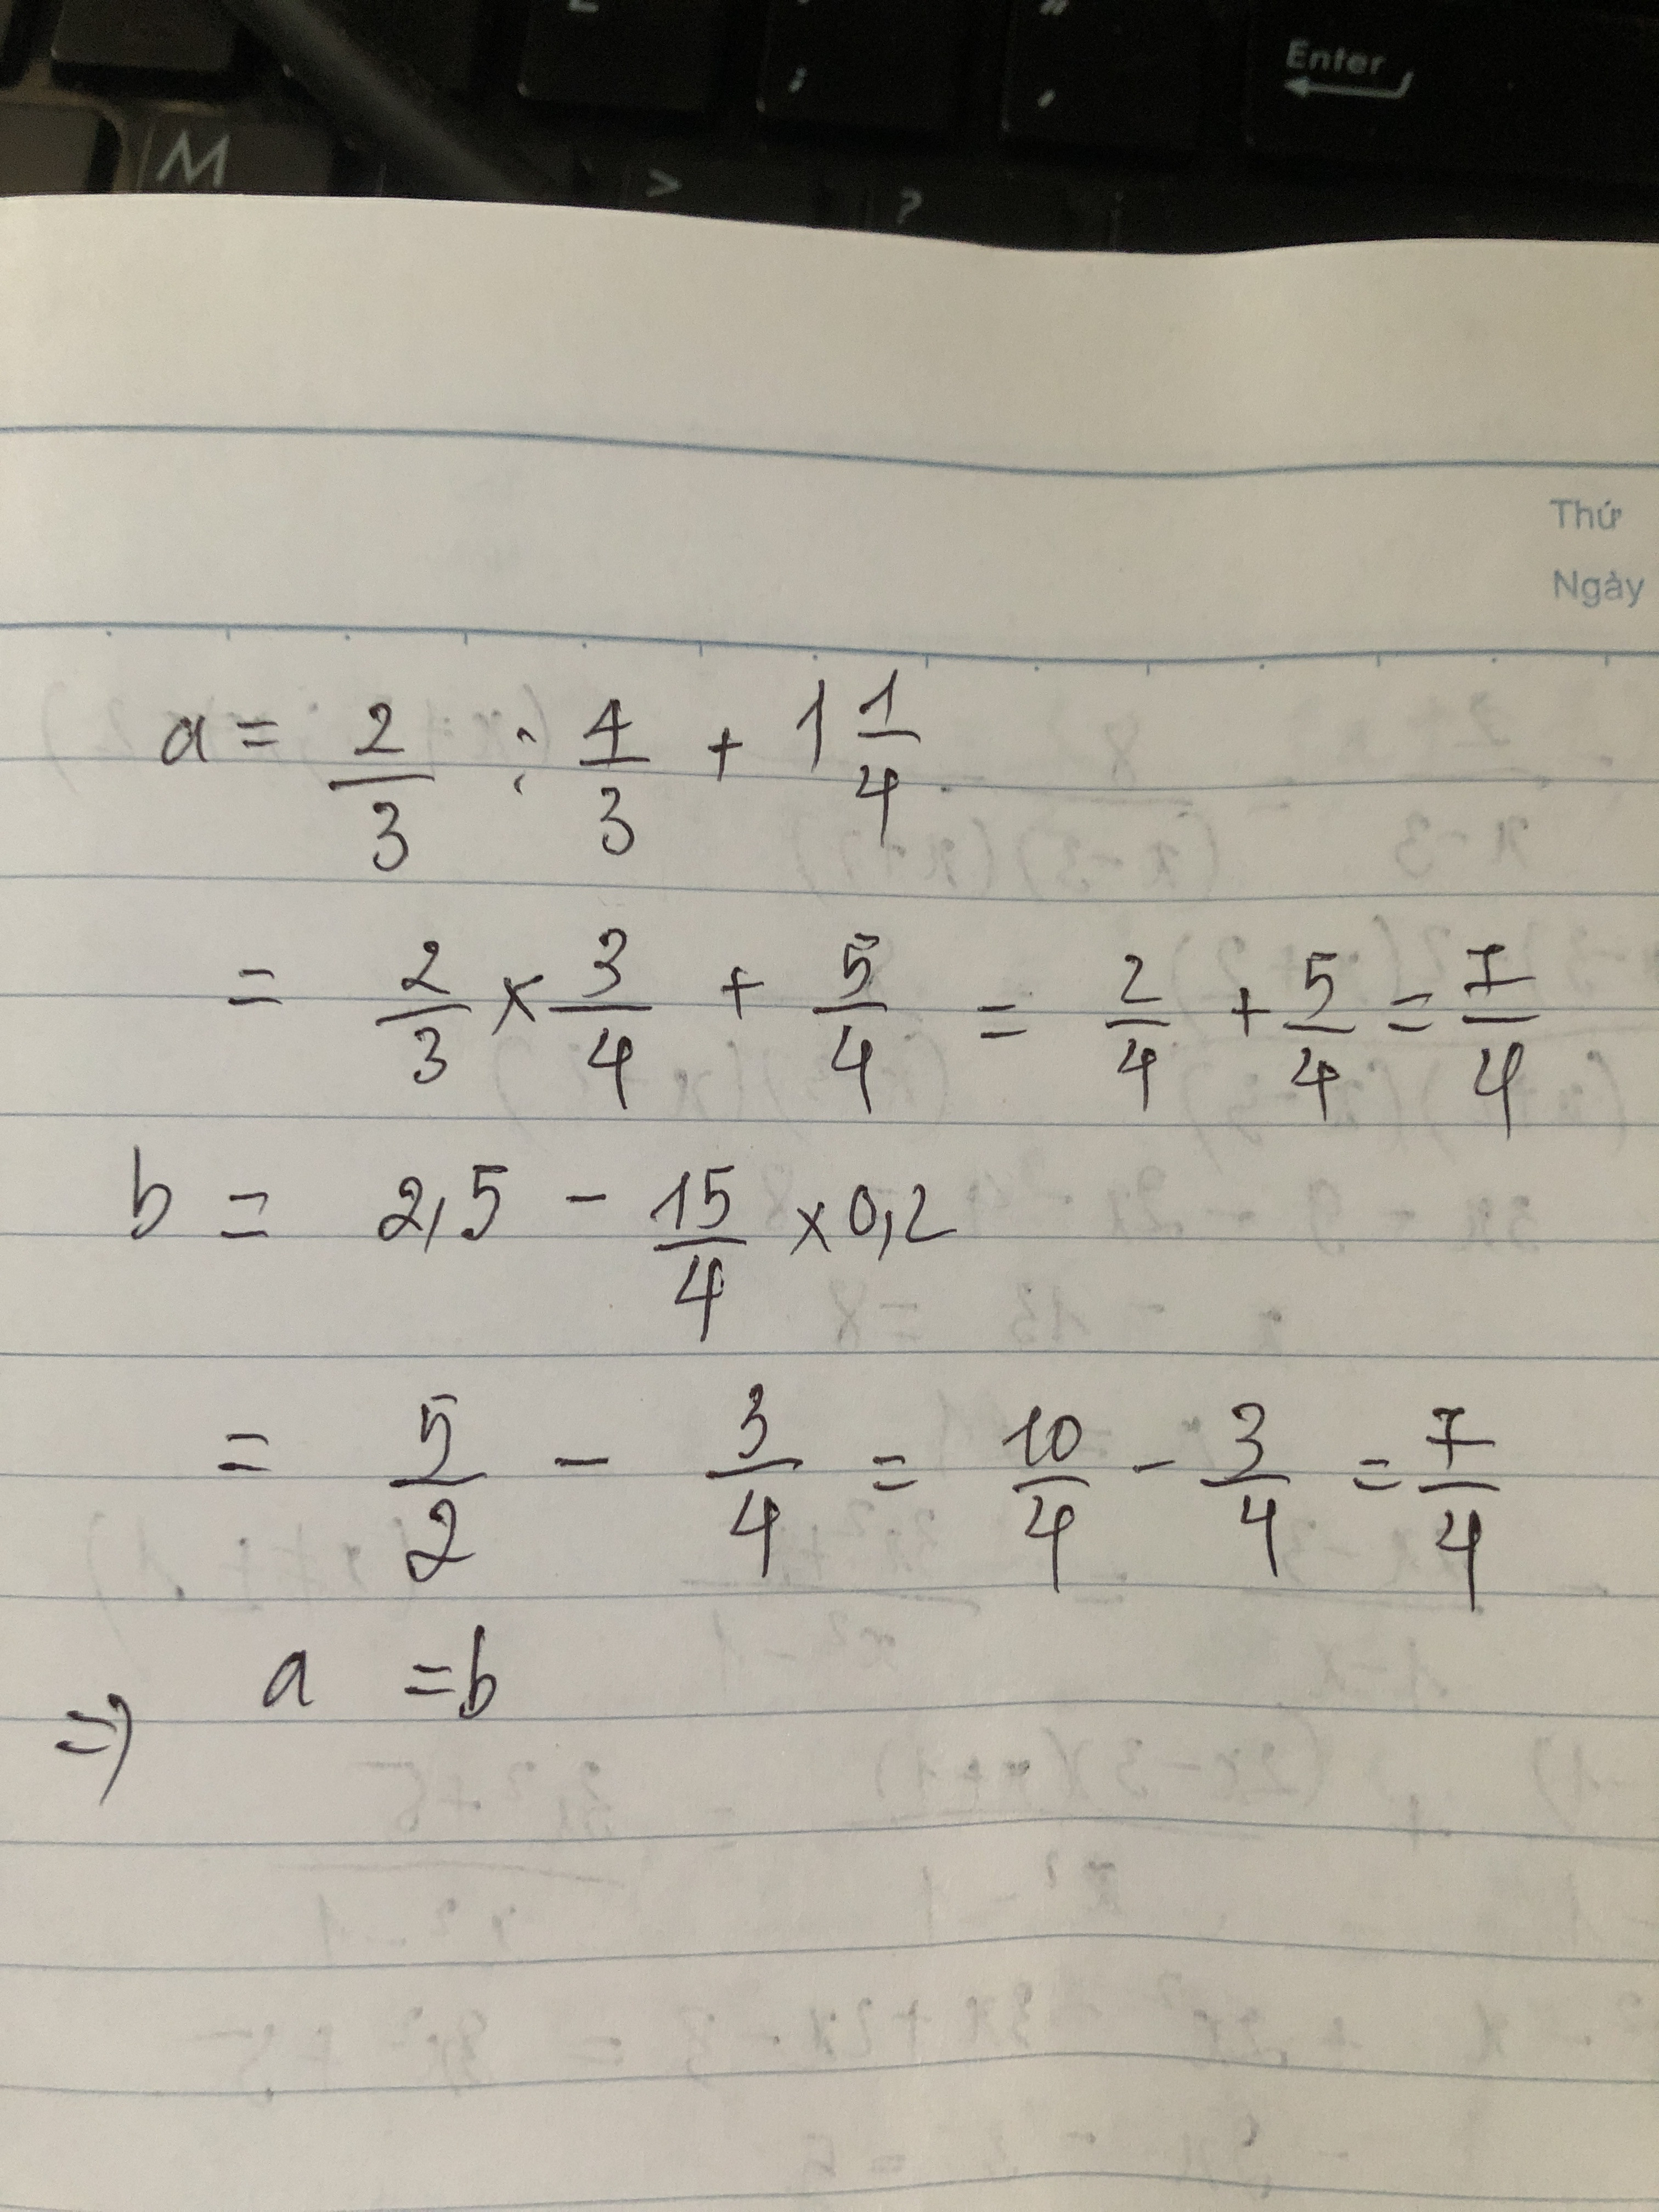 Enter
M
> ?
Thứ
Ngày
a = 2/3 : 4/3 + 1 1/4
= 2/3 × 3/4 + 5/4 = 2/4 + 5/4 = 7/4
b = 2,5 - 15/4 × 0,2
= 5/2 - 3/4 = 10/4 - 3/4 = 7/4
=> a = b